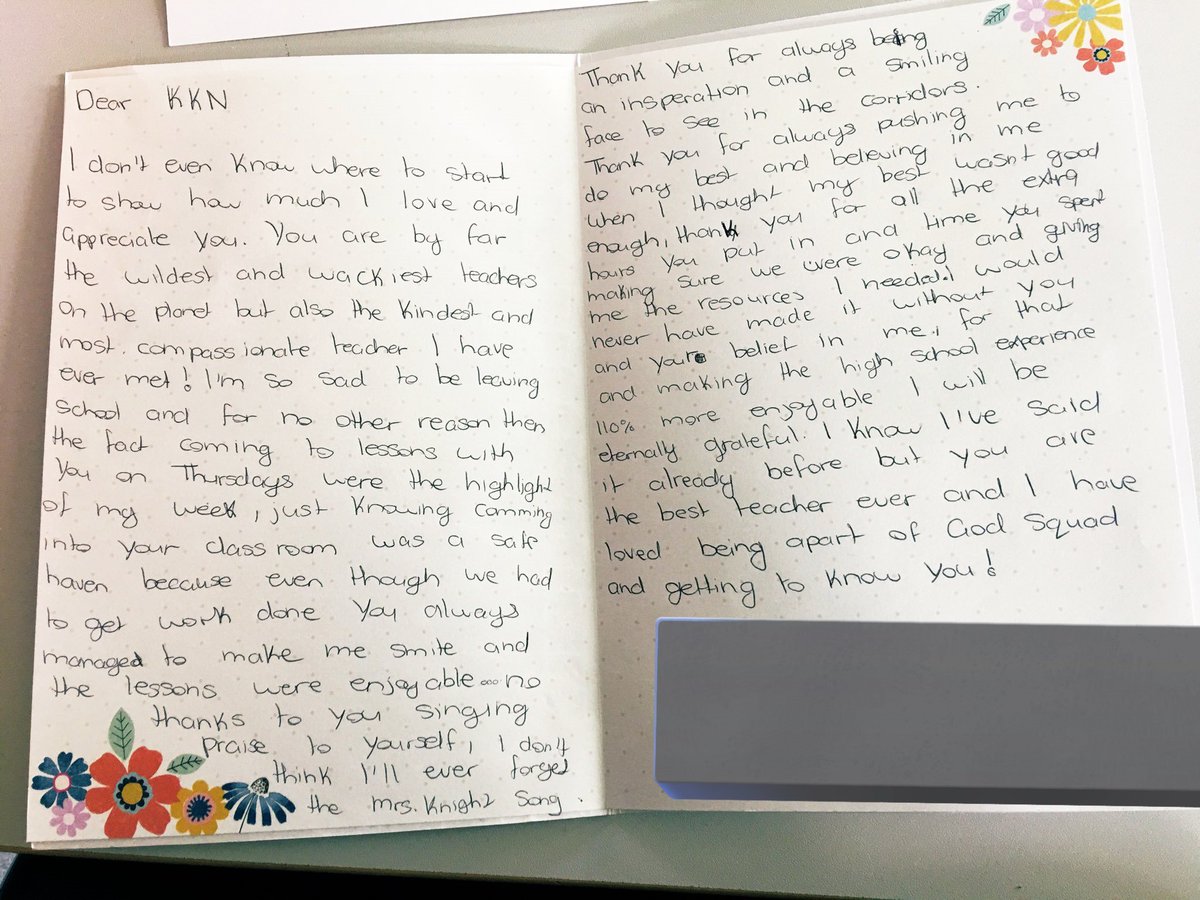 Dear KKN
I don't even know where to start
to show how much I love and
appreciate you. You are by far
the wildest and wackiest teachers
on the planet but also the kindest and
most. compassionate teacher I have
ever met! I'm so sad to be leaving
school and for no other reason then
the fact coming to lessons with
you on Thursdays were the highlight
of my week, just knowing comming
into your classroom was a safe
haven because even though we had
to get work done you always
managed to make me smile and
the lessons were enjoyable... no
thanks to you singing
praise to yourself, I don't
think I'll ever forget
the mrs. Knight song.
Thank you for always being
an insperation and a smiling
face to see in the corridors.
Thank you for always pushing me to
do my best and beleving in me
when I thought my best wasn't good
enough, thank you for all the extra
hours you put in and time you spent
making sure we were okay and giving
me the resources I needed. I would
never have made it without you
and your belief in me, for that
and making the high school experience
110% more enjoyable I will be
eternally grateful. I know I've said
it already before but you are
the best teacher ever and I have
loved being apart of God Squad
and getting to know you!